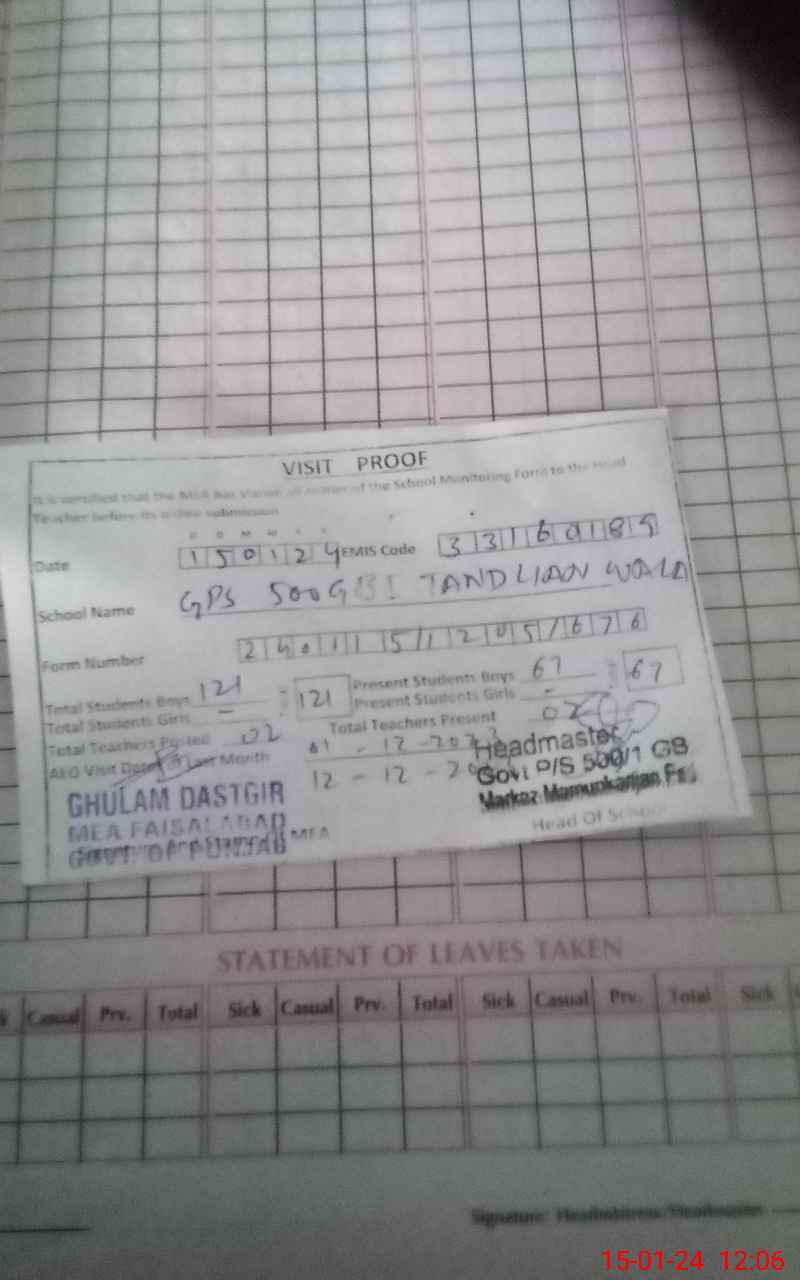 VISIT PROOF
It is certified that the MEA has shown all entries of the School Monitoring Form to the Head
Teacher before its online submission
D D M M Y Y
Date 150124 EMIS Code 33160185
School Name GPS 500GB I TANDLIAN WALA
Form Number 240115/1205/676
Total Students Boys 121 121 Present Students Boys 67 67
Total Students Girls - Present Students Girls -
Total Teachers Posted 02 Total Teachers Present 02
AEO Visit Dates of Last Month 01-12-2023
12-12-
GHULAM DASTGIR
MEA FAISALABAD
GOVT OF PUNJAB
MEA
Headmaster
Govt P/S 500/1 GB
Markaz Mamunkanjan
Head Of School
STATEMENT OF LEAVES TAKEN
Casual Prv. Total Sick Casual Prv. Total Sick Casual Prv. Total Sick
Signature: Headmistress/Headmaster
15-01-24 12:06